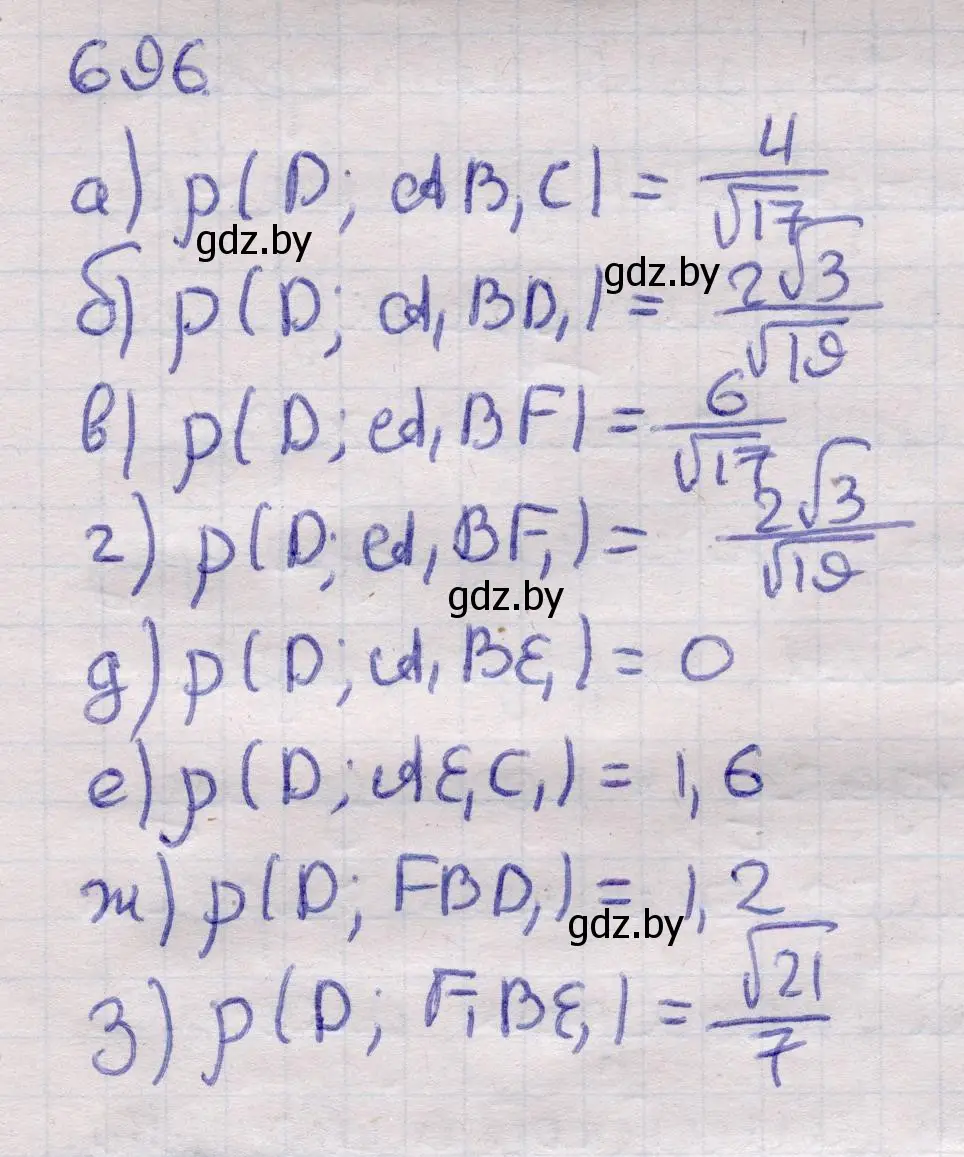 696
а) p(D; AB₁C) = 4/√17
gdz.by
gdz.by
б) p(D; A₁BD₁) = 2√3/√19
в) p(D; A₁BF) = 6/√17
г) p(D; A₁BF₁) = 2√3/√19
gdz.by
д) p(D; A₁BE₁) = 0
е) p(D; AE₁C₁) = 1,6
ж) p(D; FBD₁) = 1,2
gdz.by
з) p(D; F₁BE₁) = √21/7